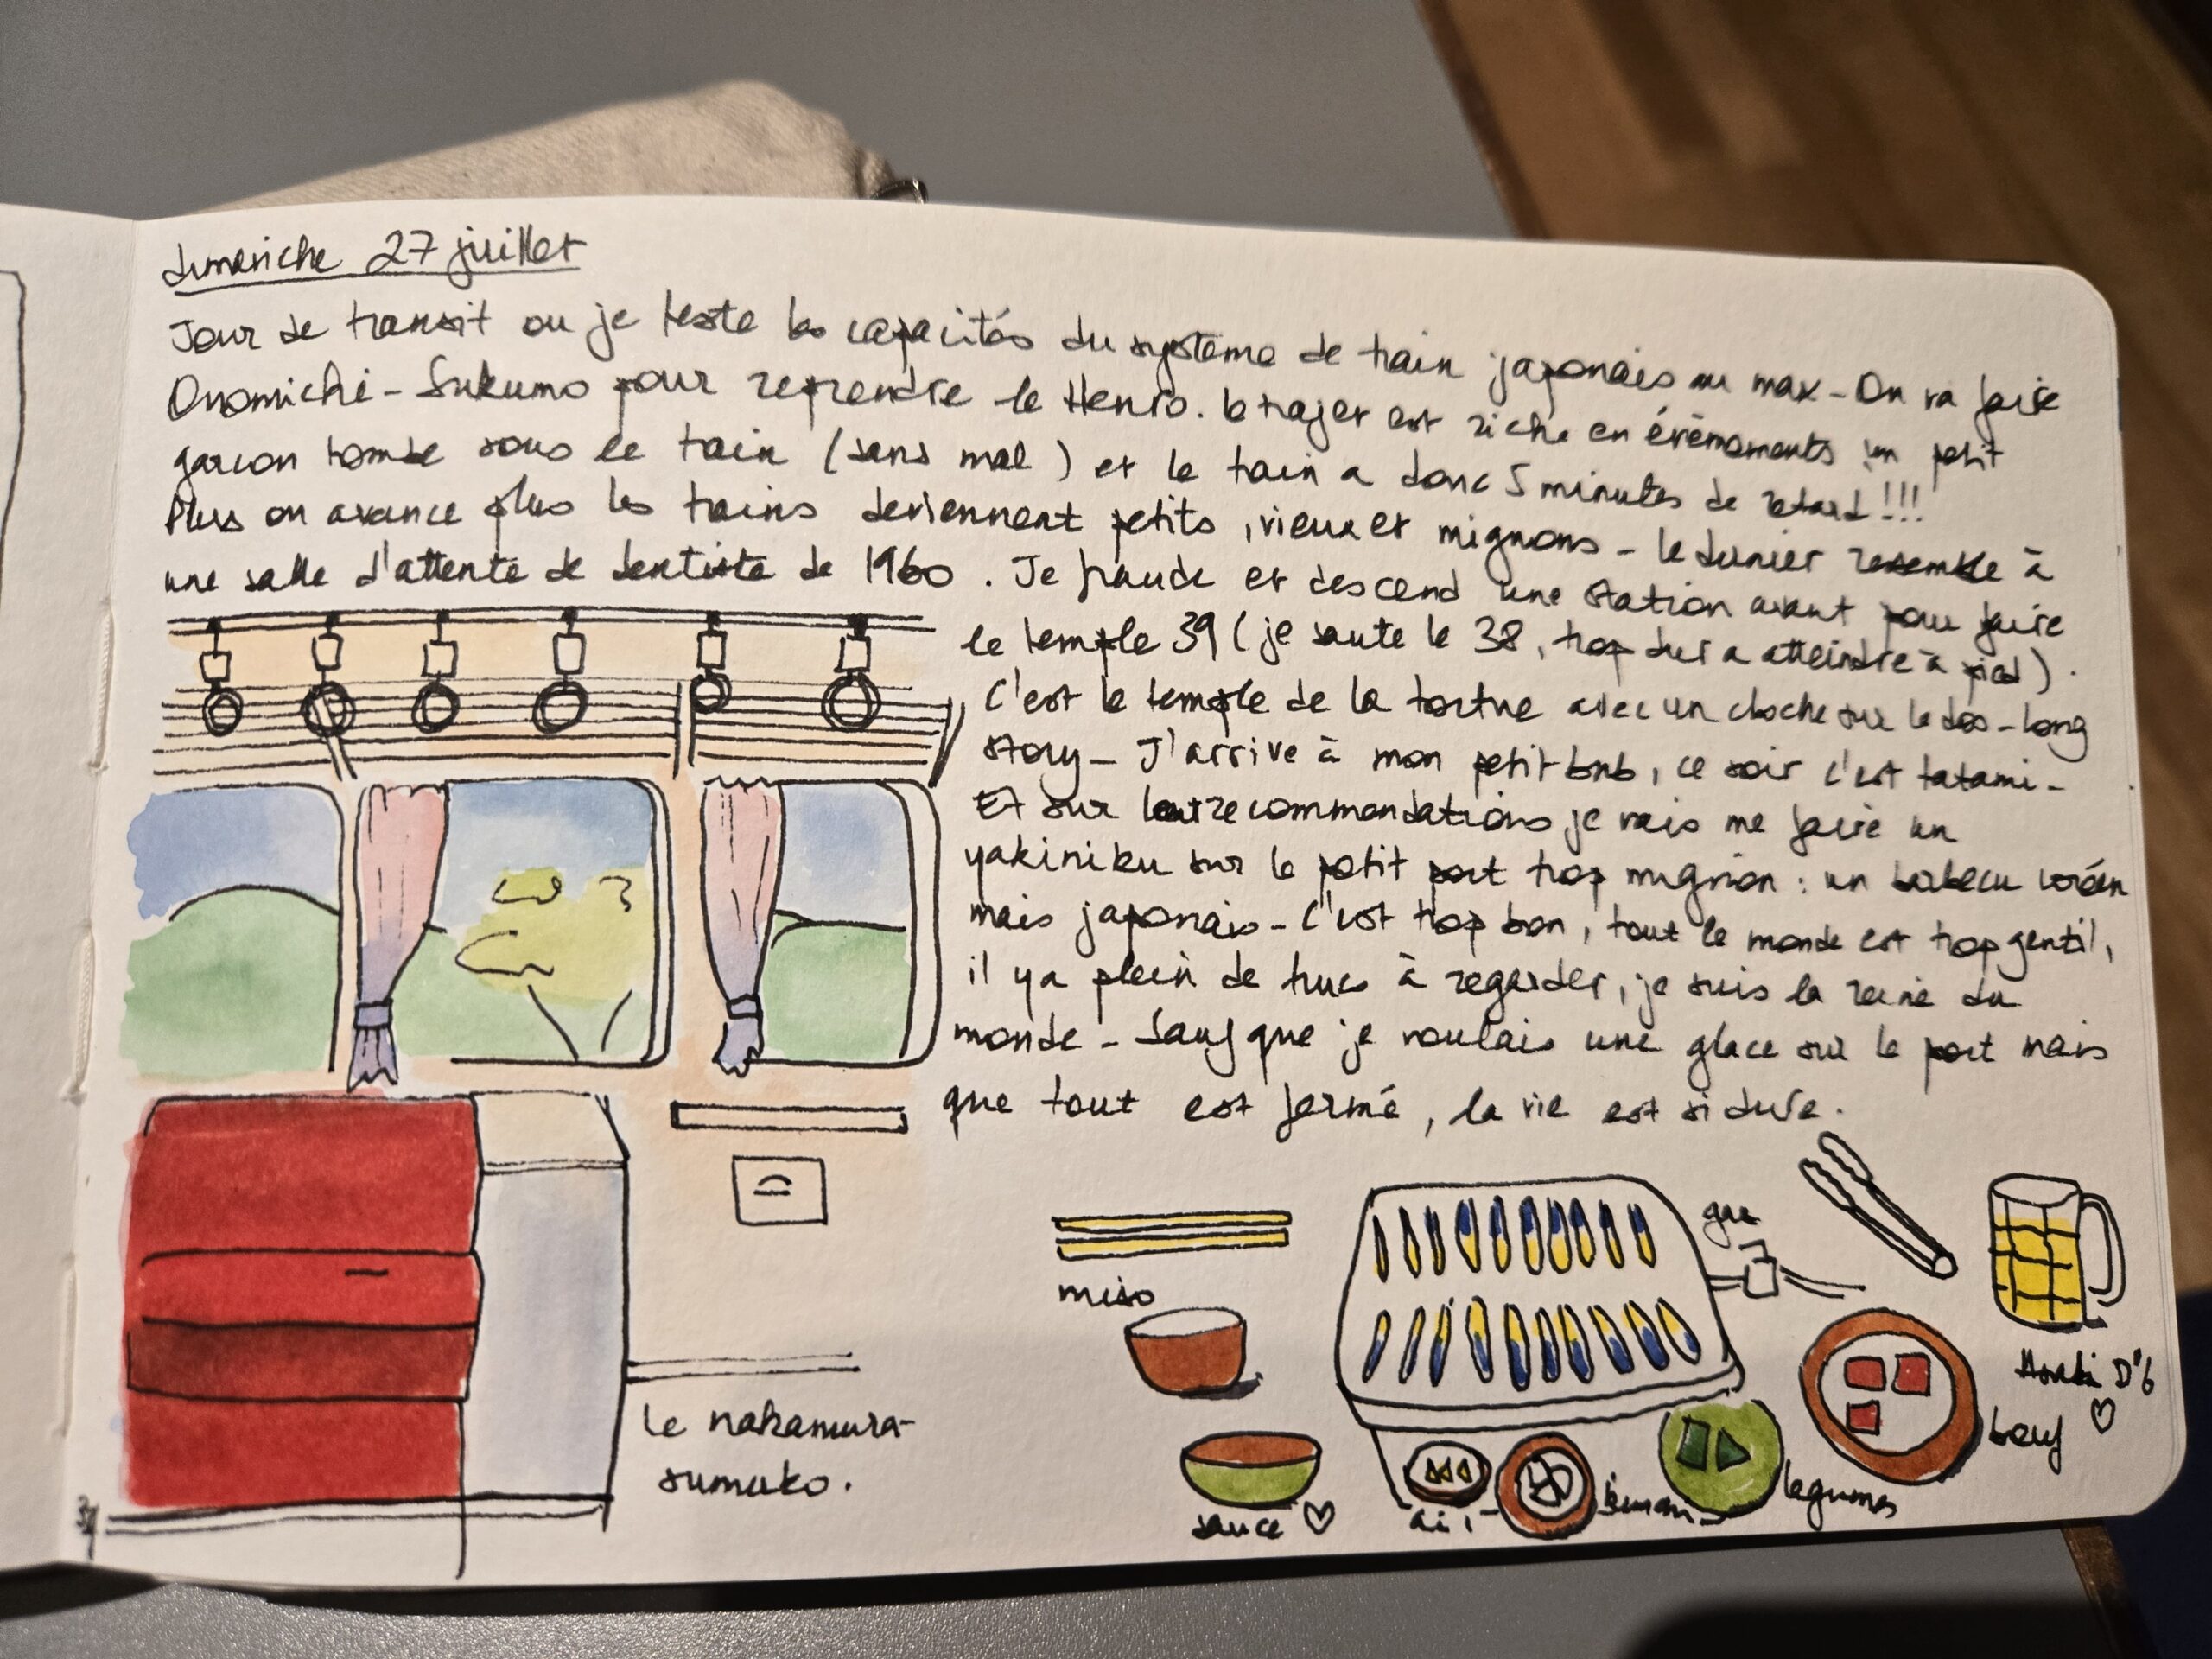 dimanche 27 juillet
Jour de transit ou je teste les capacités du système de train japonais au max - On va faire
Onomichi - Sukumo pour reprendre le Henro. le trajet est riche en évènements un petit
garcon tombe sous le train (sans mal) et le train a donc 5 minutes de retard!!!
Plus on avance plus les trains deviennent petits, vieux et mignons - le dernier ressemble à
une salle d'attente de dentiste de 1960. Je fraude et descend une station avant pour faire
le temple 39 (je saute le 38, trop dur a atteindre à pied).
C'est le temple de la tortue avec un cloche sur le dos - long
story - J'arrive à mon petit bnb, ce soir c'est tatami -
Et sur leur recommendations je vais me faire un
yakiniku sur le petit port trop mignon : un barbecu coréen
mais japonais - C'est trop bon, tout le monde est trop gentil,
il y a plein de trucs à regarder, je suis la reine du
monde - Sauf que je voulais une glace sur le port mais
que tout est fermé, la vie est si dure.
miso
Asahi
bœuf
legumes
sauce
le nakamura-
sumuko.